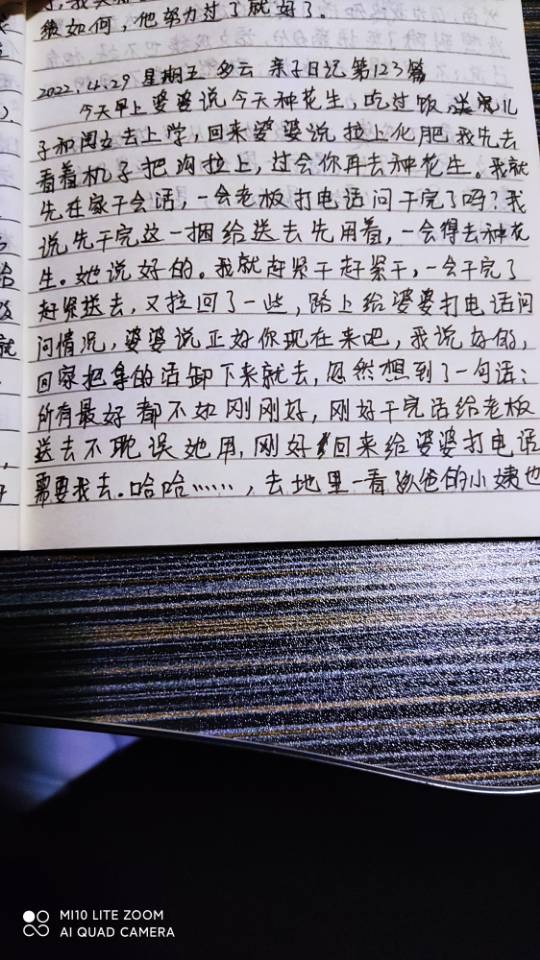 绩如何，他努力过了就好了。
2022.4.29 星期五 多云 亲子日记 第123篇
今天早上婆婆说今天种花生，吃过饭，送完儿
子和闺女去上学，回来婆婆说拉上化肥我先去
看着机子把沟拉上，过会你再去种花生。我就
先在家干会活，一会老板打电话问干完了吗？我
说先干完这一捆给送去先用着，一会得去种花
生。她说好的。我就赶紧干赶紧干，一会干完了
赶紧送去，又拉回了一些，路上给婆婆打电话问
问情况，婆婆说正好你现在来吧，我说好的，
回家把拿的活卸下来就去，忽然想到了一句话：
所有最好都不如刚刚好，刚好干完活给老板
送去不耽误她用，刚好回来给婆婆打电话
需要我去。哈哈……，去地里一看 爸的小姨也
MI10 LITE ZOOM
AI QUAD CAMERA